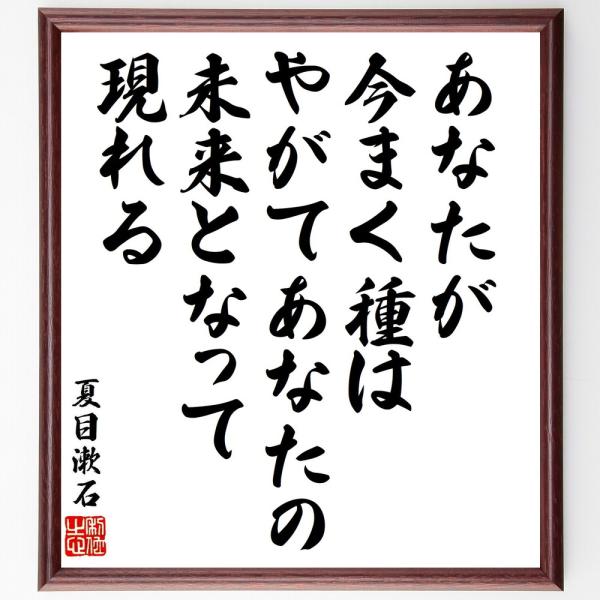 あなたが
今まく種は
やがてあなたの
未来となって
現れる
夏目漱石